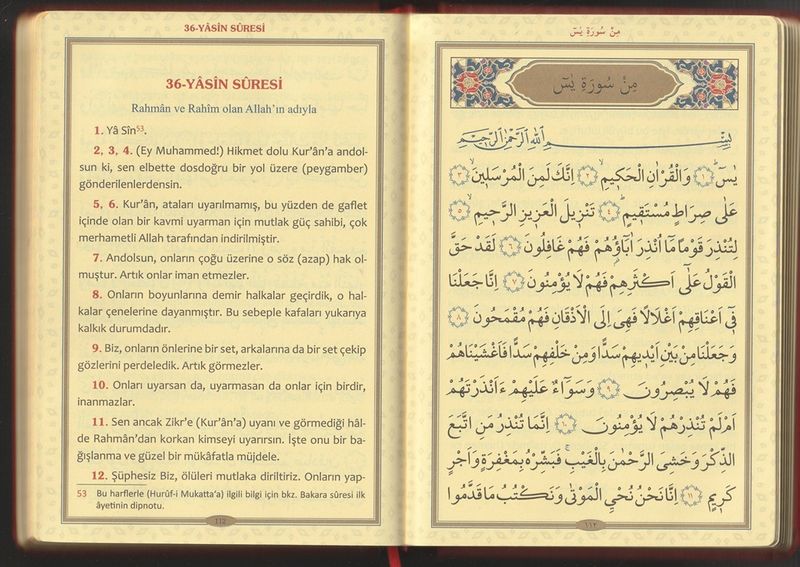 36-YÂSİN SÛRESİ
36-YÂSİN SÛRESİ
Rahmân ve Rahîm olan Allah’ın adıyla
1. Yâ Sîn53.
2, 3, 4. (Ey Muhammed!) Hikmet dolu Kur’ân’a andol-
sun ki, sen elbette dosdoğru bir yol üzere (peygamber)
gönderilenlerdensin.
5, 6. Kur’ân, ataları uyarılmamış, bu yüzden de gaflet
içinde olan bir kavmi uyarman için mutlak güç sahibi, çok
merhametli Allah tarafından indirilmiştir.
7. Andolsun, onların çoğu üzerine o söz (azap) hak ol-
muştur. Artık onlar iman etmezler.
8. Onların boyunlarına demir halkalar geçirdik, o hal-
kalar çenelerine dayanmıştır. Bu sebeple kafaları yukarıya
kalkık durumdadır.
9. Biz, onların önlerine bir set, arkalarına da bir set çekip
gözlerini perdeledik. Artık görmezler.
10. Onları uyarsan da, uyarmasan da onlar için birdir,
inanmazlar.
11. Sen ancak Zikr’e (Kur’ân’a) uyanı ve görmediği hâl-
de Rahmân’dan korkan kimseyi uyarırsın. İşte onu bir ba-
ğışlanma ve güzel bir mükâfatla müjdele.
12. Şüphesiz Biz, ölüleri mutlaka diriltiriz. Onların yap-
53 Bu harflerle (Hurûf-i Mukatta’a) ilgili bilgi için bkz. Bakara sûresi ilk
âyetinin dipnotu.
112
مِنْ سُورَةِ يٰسٓ
مِنْ سُورَةِ يٰسٓ
بِسْمِ اللّٰهِ الرَّحْمٰنِ الرَّحِيمِ
يٰسٓ ﴿١﴾ وَالْقُرْاٰنِ الْحَكِيمِ ﴿٢﴾ اِنَّكَ لَمِنَ الْمُرْسَلِينَ ﴿٣﴾
عَلٰى صِرَاطٍ مُسْتَقِيمٍ ﴿٤﴾ تَنْزِيلَ الْعَزِيزِ الرَّحِيمِ ﴿٥﴾
لِتُنْذِرَ قَوْمًا مَٓا اُنْذِرَ اٰبَٓاؤُ۬هُمْ فَهُمْ غَافِلُونَ ﴿٦﴾ لَقَدْ حَقَّ
الْقَوْلُ عَلٰٓى اَكْثَرِهِمْ فَهُمْ لَا يُؤْمِنُونَ ﴿٧﴾ اِنَّا جَعَلْنَا
فِٓى اَعْنَاقِهِمْ اَغْلَالًا فَهِىَ اِلَى الْاَذْقَانِ فَهُمْ مُقْمَحُونَ ﴿٨﴾
وَجَعَلْنَا مِنْ بَيْنِ اَيْدِيهِمْ سَدًّا وَمِنْ خَلْفِهِمْ سَدًّا فَاَغْشَيْنَاهُمْ
فَهُمْ لَا يُبْصِرُونَ ﴿٩﴾ وَسَوَٓاءٌ عَلَيْهِمْ ءَاَنْذَرْتَهُمْ
اَمْ لَمْ تُنْذِرْهُمْ لَا يُؤْمِنُونَ ﴿١٠﴾ اِنَّمَا تُنْذِرُ مَنِ اتَّبَعَ
الذِّكْرَ وَخَشِىَ الرَّحْمٰنَ بِالْغَيْبِ فَبَشِّرْهُ بِمَغْفِرَةٍ وَاَجْرٍ
كَرِيمٍ ﴿١١﴾ اِنَّا نَحْنُ نُحْيِ الْمَوْتٰى وَنَكْتُبُ مَا قَدَّمُوا
١١٢